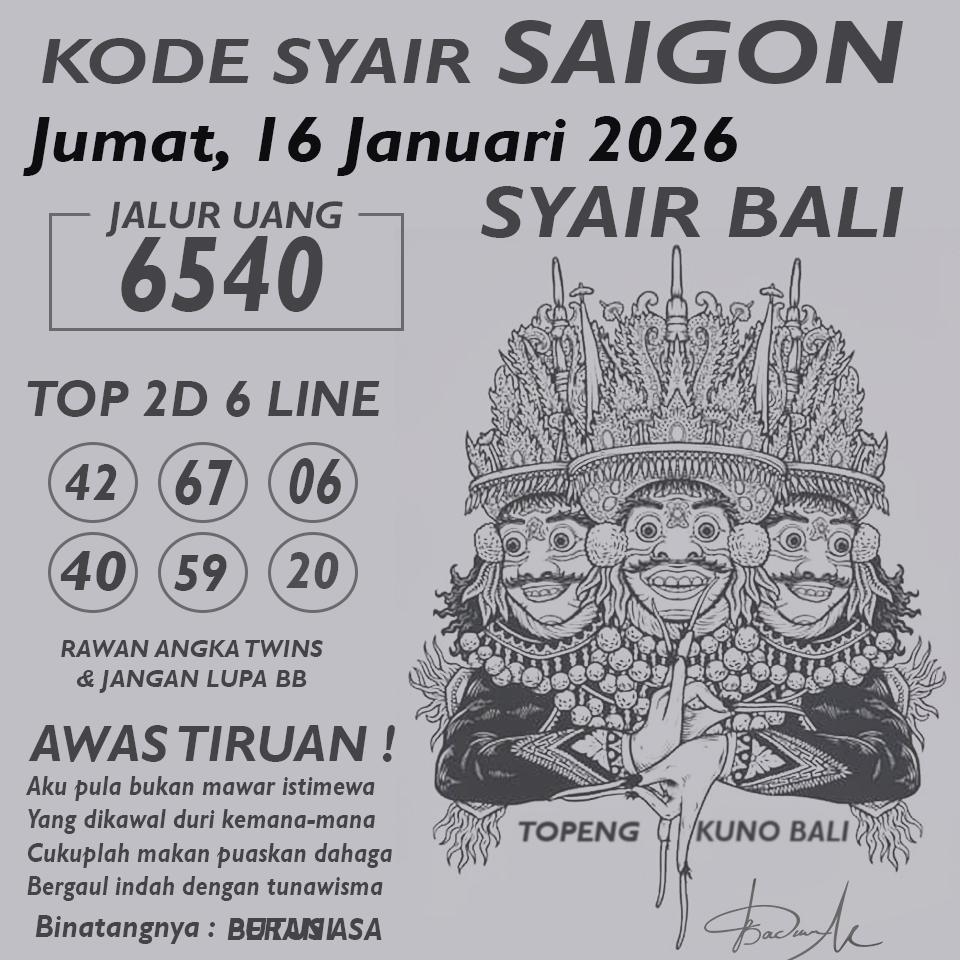 KODE SYAIR SAIGON
Jumat, 16 Januari 2026
SYAIR BALI
JALUR UANG
6540
TOP 2D 6 LINE
42 67 06
40 59 20
RAWAN ANGKA TWINS
& JANGAN LUPA BB
AWAS TIRUAN !
Aku pula bukan mawar istimewa
Yang dikawal duri kemana-mana
Cukuplah makan puaskan dahaga
Bergaul indah dengan tunawisma
Binatangnya :
TOPENG KUNO BALI